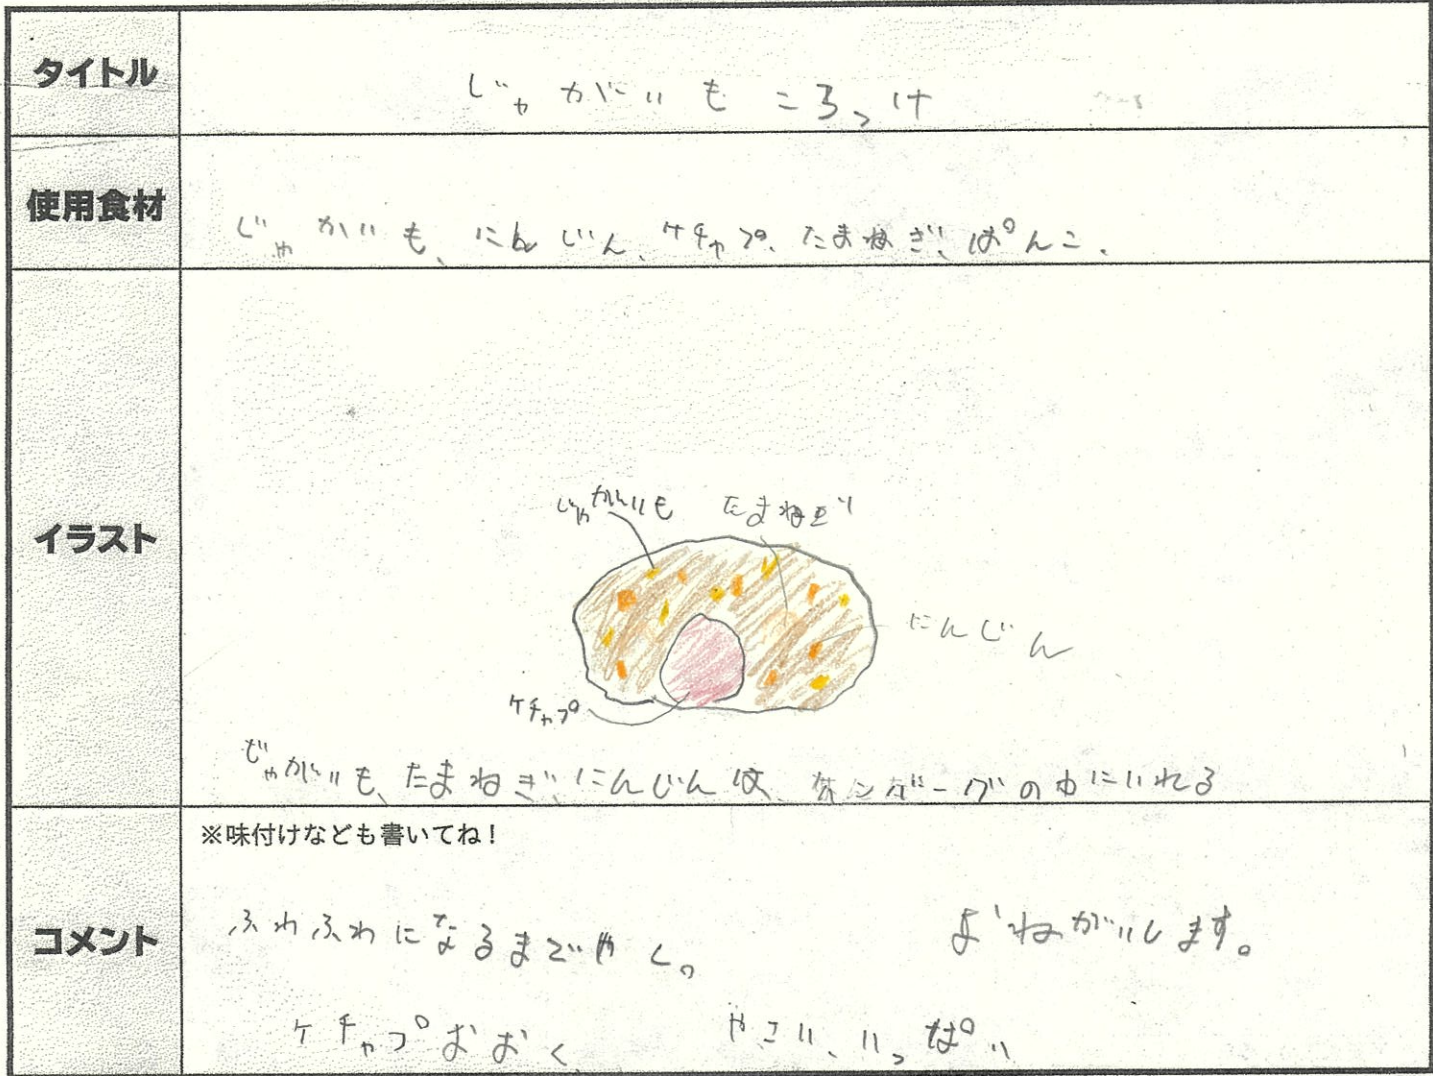 タイトル
じゃがいもころっけ
使用食材
じゃがいも、にんじん、ケチャプ、たまねぎ、ぱんこ、
イラスト
じゃがいも
たまねぎ
にんじん
ケチャプ
じゃがいも、たまねぎ、にんじんは、ハンバーグの中にいれる
コメント
※味付けなども書いてね!
ふわふわになるまでやく。
おねがいします。
ケチャプおおく
やさい、いっぱい